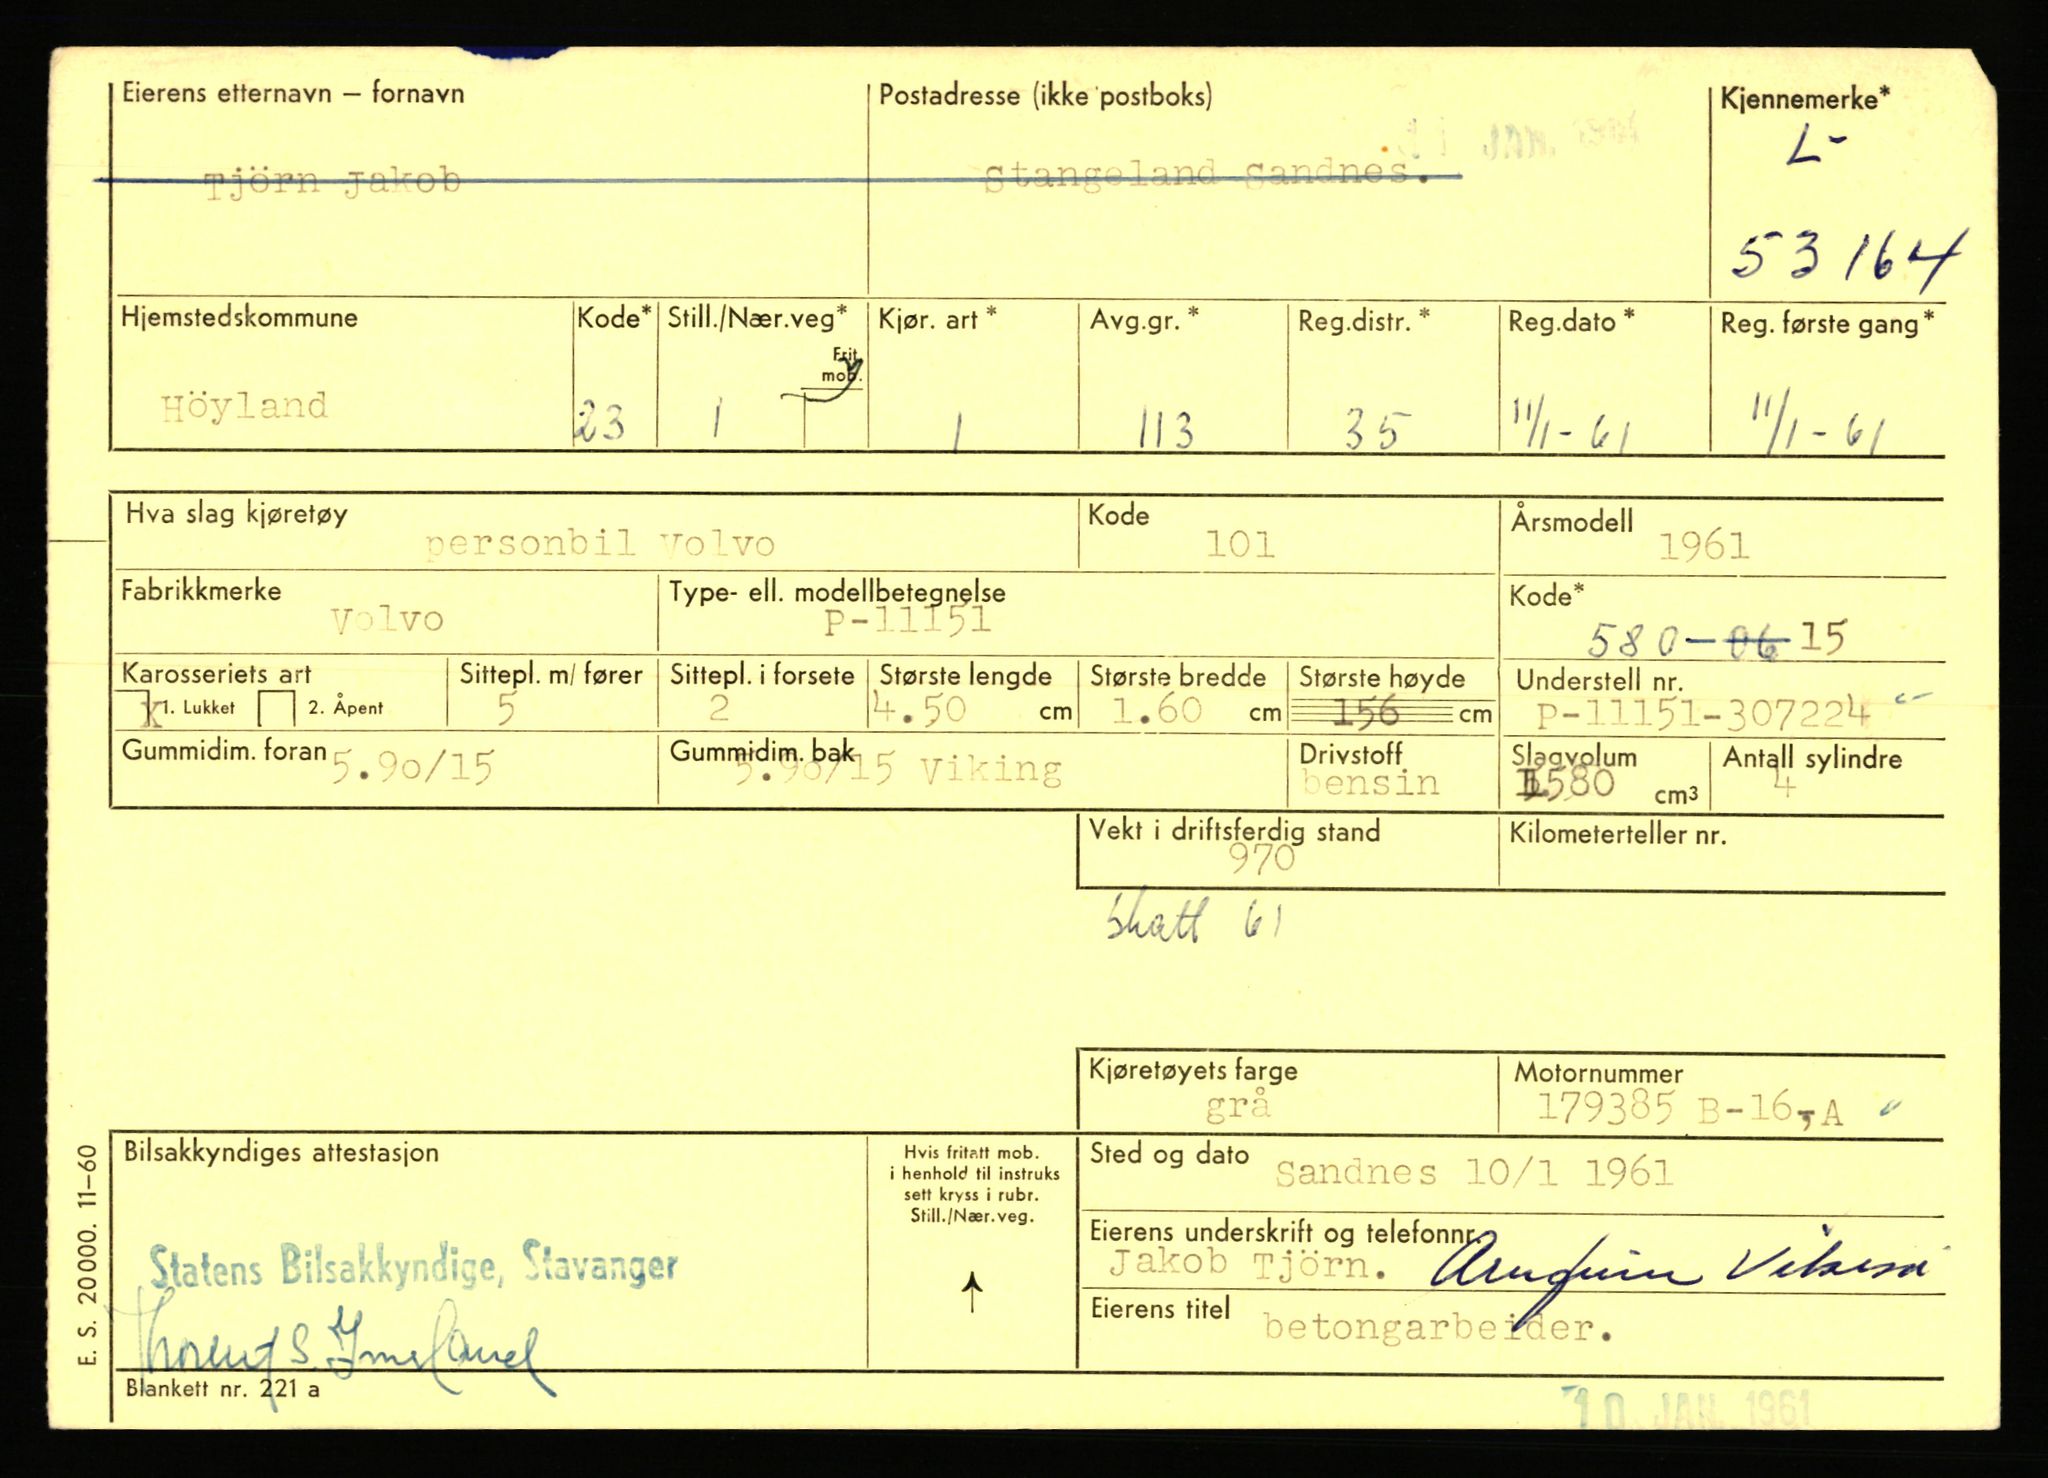 Eierens etternavn – fornavn
Tjörn Jakob
Postadresse (ikke postboks)
Stangeland Sandnes.
Kjennemerke*
L-
53164
Hjemstedskommune
Höyland
Kode*
23
Still./Nær.veg*
Frit. mob.
1
Kjør. art *
1
Avg.gr. *
113
Reg.distr. *
35
Reg.dato *
11/1-61
Reg. første gang *
11/1-61
Hva slag kjøretøy
personbil Volvo
Kode
101
Årsmodell
1961
Fabrikkmerke
Volvo
Type- ell. modellbetegnelse
P-11151
Kode*
580-06 15
Karosseriets art
x 1. Lukket 2. Åpent
Sittepl. m/ fører
5
Sittepl. i forsete
2
Største lengde
4.50 cm
Største bredde
1.60 cm
Største høyde
156 cm
Understell nr.
P-11151-307224
Gummidim. foran
5.90/15
Gummidim. bak
5.90/15 Viking
Drivstoff
bensin
Slagvolum
1580 cm³
Antall sylindre
4
Vekt i driftsferdig stand
970
Kilometerteller nr.
skatt 61
Kjøretøyets farge
grå
Motornummer
179385 B-16,-A
Bilsakkyndiges attestasjon
Statens Bilsakkyndige, Stavanger
Hvis fritatt mob.
i henhold til instruks
sett kryss i rubr.
Still./Nær.veg.
Sted og dato
Sandnes 10/1 1961
Eierens underskrift og telefonnr.
Jakob Tjörn.
Eierens titel
betongarbeider.
Blankett nr. 221 a
10. JAN. 1961
E. S. 20000. 11–60